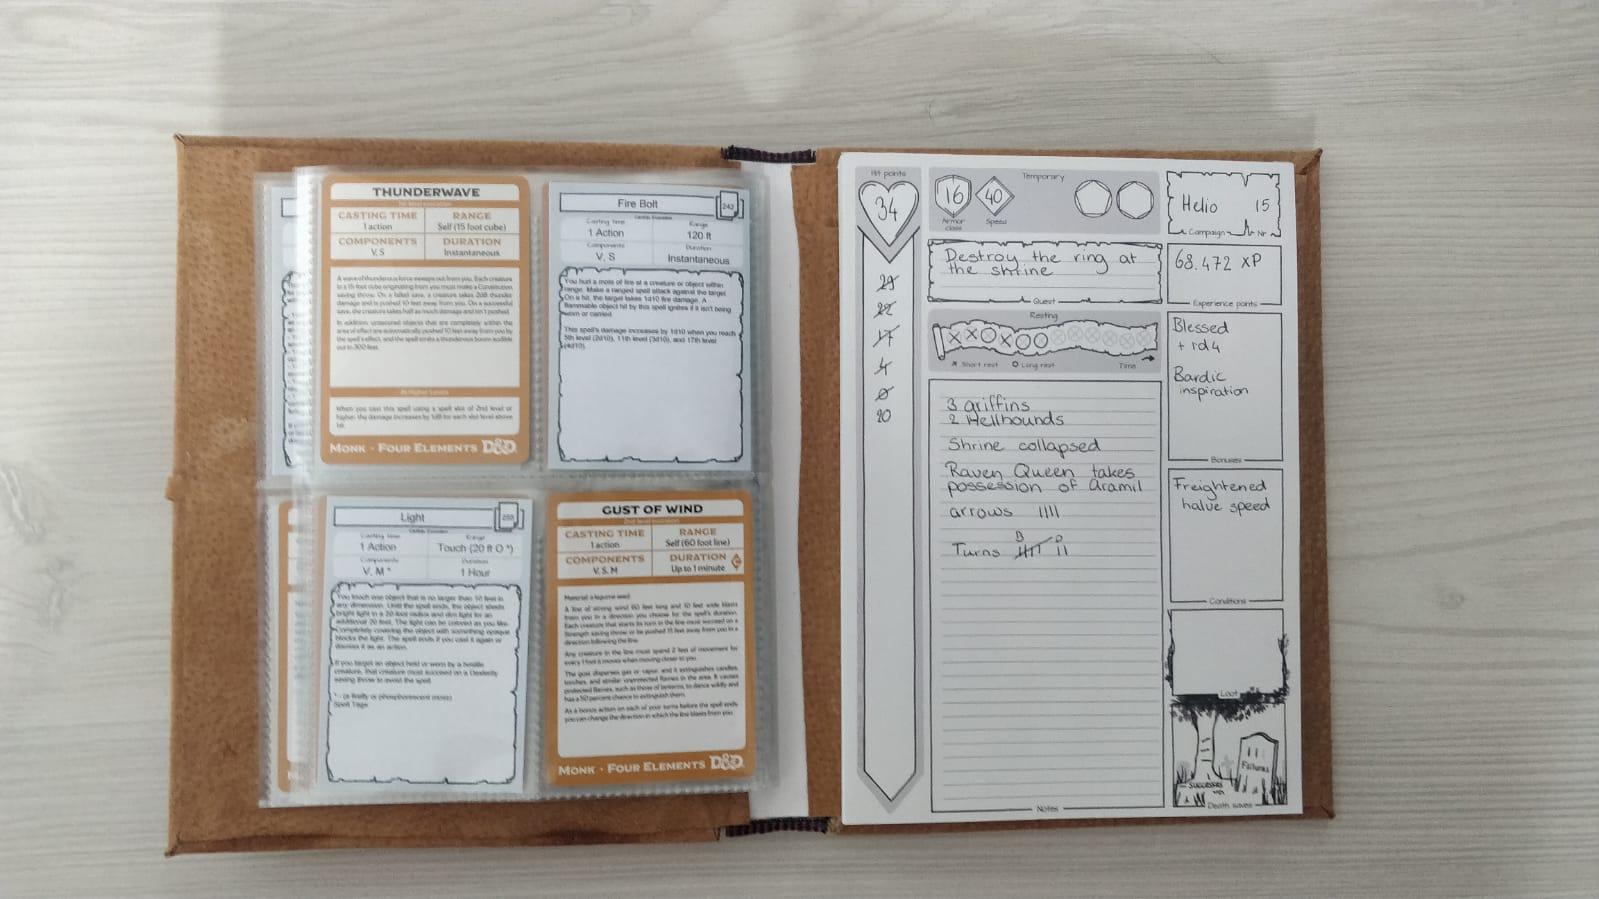 THUNDERWAVE
1st level evocation
CASTING TIME
1 action
RANGE
Self (15 foot cube)
COMPONENTS
V, S
DURATION
Instantaneous
A wave of thunderous force sweeps out from you. Each creature
in a 15 foot cube originating from you must make a Constitution
saving throw. On a failed save, a creature takes 2d8 thunder
damage and is pushed 10 feet away from you. On a successful
save, the creature takes half as much damage and isn't pushed.
In addition, unsecured objects that are completely within the
area of effect are automatically pushed 10 feet away from you by
the spell's effect, and the spell emits a thunderous boom audible
out to 300 feet.
At Higher Levels
When you cast this spell using a spell slot of 2nd level or
higher, the damage increases by 1d8 for each slot level above
1st.
MONK · FOUR ELEMENTS D&D
Fire Bolt
242
Casting time
1 Action
Range
120 ft
Components
V, S
Duration
Instantaneous
You hurl a mote of fire at a creature or object within
range. Make a ranged spell attack against the target.
On a hit, the target takes 1d10 fire damage. A
flammable object hit by this spell ignites if it isn't being
worn or carried.
This spell's damage increases by 1d10 when you reach
5th level (2d10), 11th level (3d10), and 17th level
(4d10).
Light
255
Casting time
1 Action
Range
Touch (20 ft O *)
Components
V, M *
Duration
1 Hour
You touch one object that is no larger than 10 feet in
any dimension. Until the spell ends, the object sheds
bright light in a 20-foot radius and dim light for an
additional 20 feet. The light can be colored as you like.
Completely covering the object with something opaque
blocks the light. The spell ends if you cast it again or
dismiss it as an action.
If you target an object held or worn by a hostile
creature, that creature must succeed on a Dexterity
saving throw to avoid the spell.
* - (a firefly or phosphorescent moss)
Spell Tags:
GUST OF WIND
2nd level evocation
CASTING TIME
1 action
RANGE
Self (60 foot line)
COMPONENTS
V, S, M
DURATION
Up to 1 minute
C
Material: a legume seed
A line of strong wind 60 feet long and 10 feet wide blasts
from you in a direction you choose for the spell's duration.
Each creature that starts its turn in the line must succeed on a
Strength saving throw or be pushed 15 feet away from you in a
direction following the line.
Any creature in the line must spend 2 feet of movement for
every 1 foot it moves when moving closer to you.
The gust disperses gas or vapor, and it extinguishes candles,
torches, and similar unprotected flames in the area. It causes
protected flames, such as those of lanterns, to dance wildly and
has a 50 percent chance to extinguish them.
As a bonus action on each of your turns before the spell ends
you can change the direction in which the line blasts from you.
MONK · FOUR ELEMENTS D&D
Hit points
34
29
22
17
4
0
20
Temporary
16
Armor
class
40
Speed
Helio 15
Campaign Nr
Destroy the ring at
the shrine
Quest
68.472 XP
Experience points
Resting
Short rest
Long rest
Time
3 griffins
2 Hellhounds
Shrine collapsed
Raven Queen takes
possession of Aramil
arrows IIII
B D
Turns
Notes
Blessed
+ 1d4
Bardic
inspiration
Bonuses
Freightened
halve speed
Conditions
Loot
Successes
Failures
Death saves